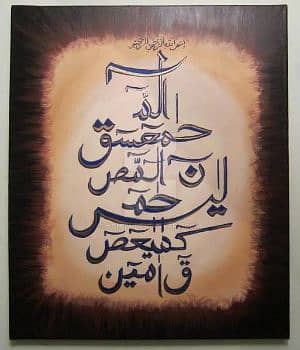 بسم الله الرحمن الرحيم
حمعسق
ن المص
يس
حم
كهيعص
ق آمين